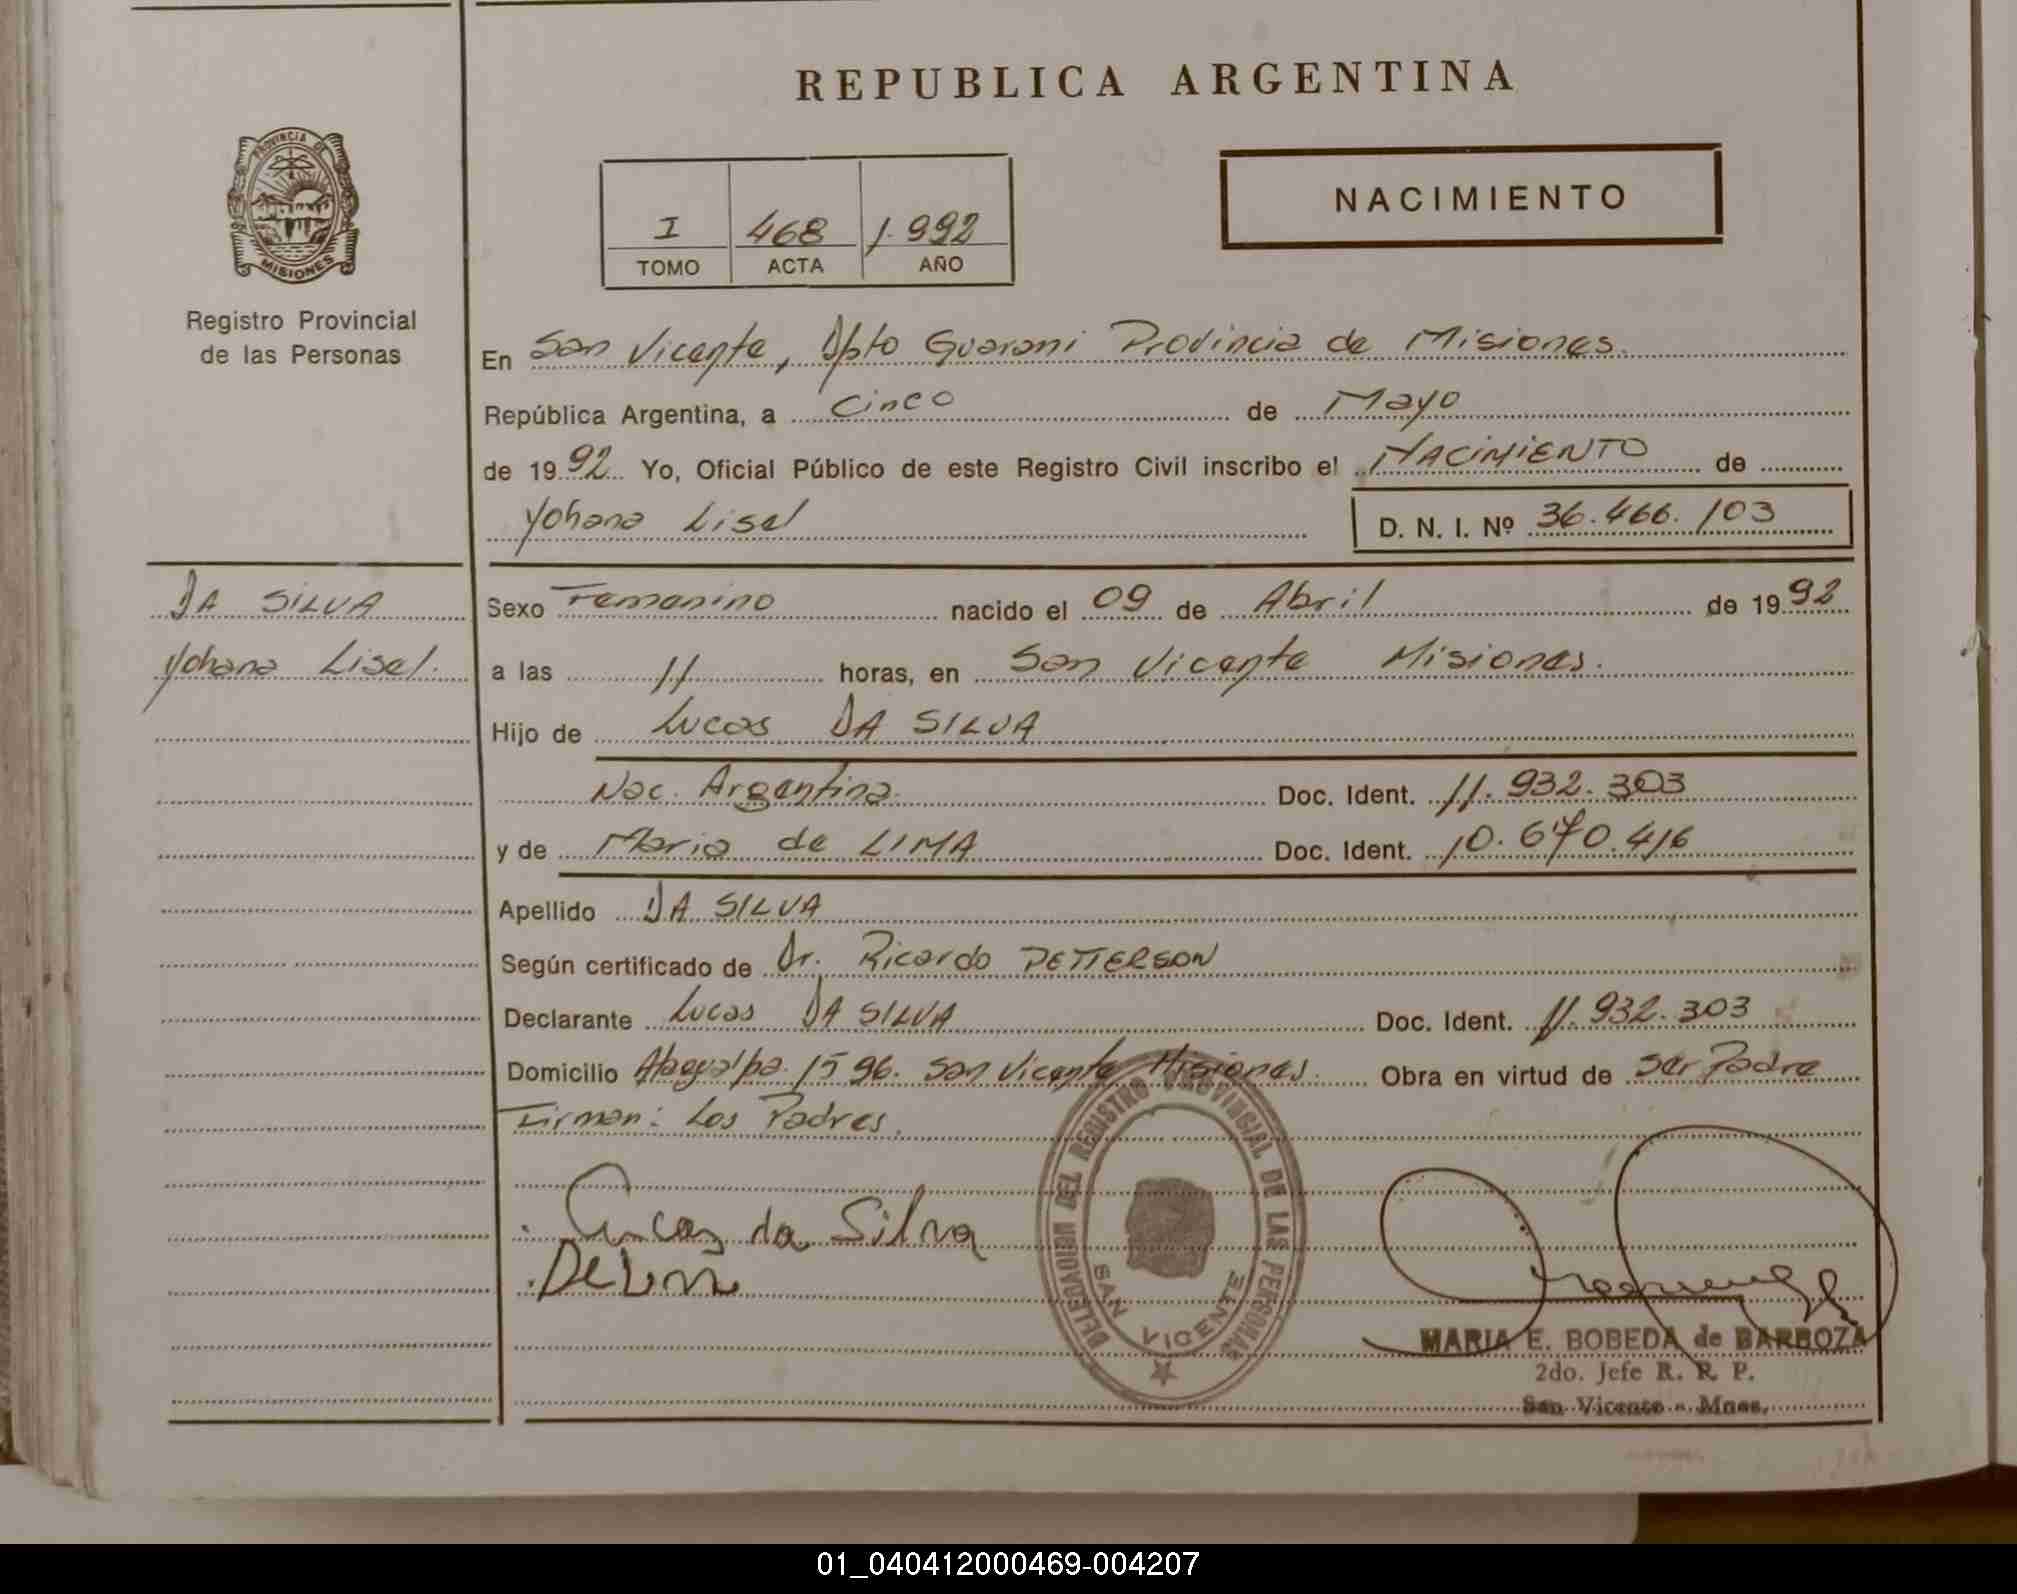 REPUBLICA ARGENTINA
PROVINCIA DE
MISIONES
Registro Provincial
de las Personas
I 468 1.992
TOMO ACTA AÑO
NACIMIENTO
En San Vicente, Dpto Guarani Provincia de Misiones.
República Argentina, a Cinco de Mayo
de 1992 Yo, Oficial Público de este Registro Civil inscribo el NACIMIENTO de
Yohana Lisel D. N. I. Nº 36.466.103
DA SILVA
Yohana Lisel.
Sexo Femenino nacido el 09 de Abril de 1992
a las 11 horas, en San Vicente Misiones.
Hijo de Lucas DA SILVA
Nac. Argentina. Doc. Ident. 11.932.303
y de Maria de LIMA Doc. Ident. 10.670.416
Apellido DA SILVA
Según certificado de Dr. Ricardo PETTERSON
Declarante Lucas DA SILVA Doc. Ident. 11.932.303
Domicilio 1596. San Vicente Misiones. Obra en virtud de Ser Padre
Firman: Los Padres.
Lucas da Silva
De
DELEGACION DEL REGISTRO PROVINCIAL DE LAS PERSONAS
SAN VICENTE
MARIA E. BOBEDA de BARBOZA
2do. Jefe R. R. P.
San Vicente - Mnes.
01_040412000469-004207